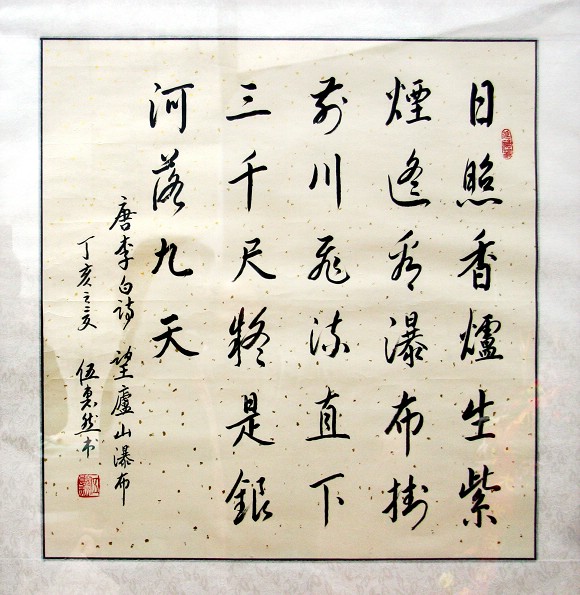 日照香爐生紫
煙遙看瀑布掛
前川飛流直下
三千尺疑是銀
河落九天
唐李白詩 望廬山瀑布
丁亥之夏 伍惠然书